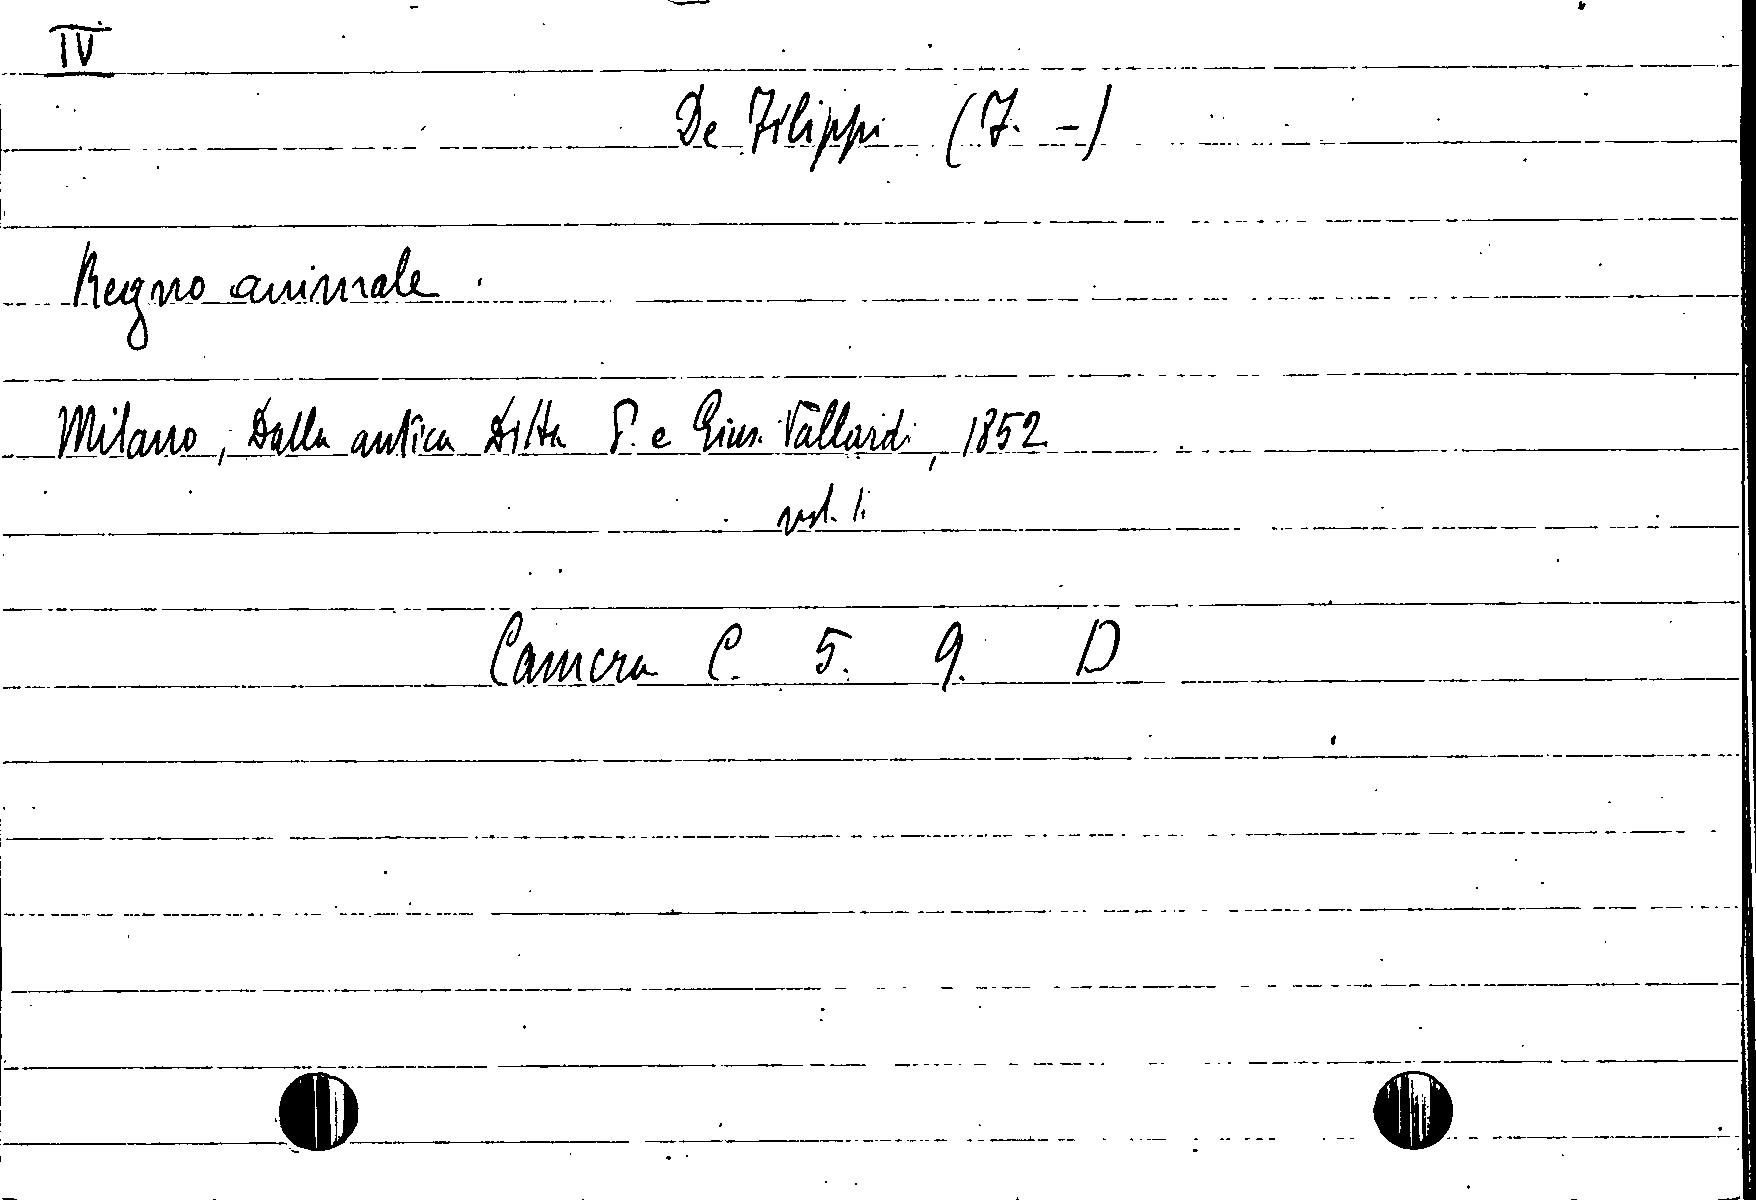 IV
De Filippi (F. -)
Regno animale.
Milano, Dalla antica Ditta P. e Gius. Vallardi, 1852
vol. 1.
Camera C. 5. 9. D